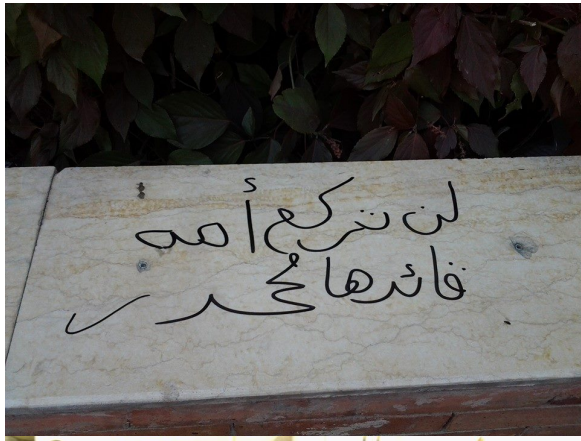 لن تركع أمه
قائدها مُحمد